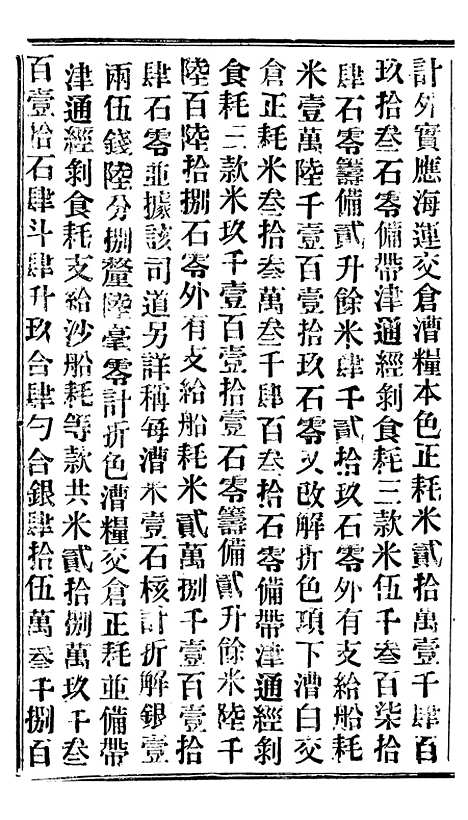 計外實應海運交倉漕糧本色正耗米貳拾萬壹千肆百
玖拾叁石零備帶津通經剝食耗三款米伍千叁百柒拾
肆石零籌備貳升餘米肆千貳拾玖石零外有支給船耗
米壹萬陸千壹百壹拾玖石零又改解折色項下漕白交
倉正耗米叁拾叁萬叁千肆百叁拾石零備帶津通經剝
食耗三款米玖千壹百壹拾壹石零籌備貳升餘米陸千
陸百陸拾捌石零外有支給船耗米貳萬捌千壹百壹拾
肆石零並據該司道另詳稱每漕米壹石核計折解銀壹
兩伍錢陸分捌釐陸毫零計折色漕糧交倉正耗並備帶
津通經剝食耗支給沙船耗等款共米貳拾捌萬玖千叁
百壹拾石肆斗肆升玖合肆勺合銀肆拾伍萬叁千捌百